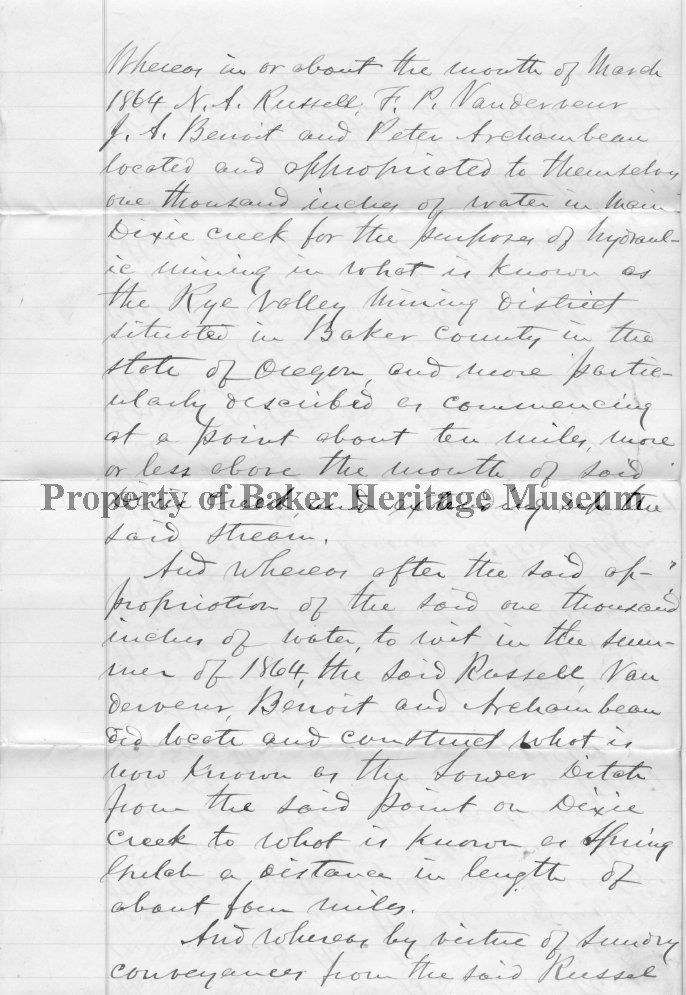 Whereas in or about the month of March
1864 N. A. Russell, F. P. Vanderveur
J. A. Benoit and Peter Archambeau
located and appropriated to themselves
one thousand inches of water in Main
Dixie creek for the purposes of hydraul-
ic mining in what is known as
the Rye Valley Mining District
situated in Baker County in the
state of Oregon, and more partic-
ularly described as commencing
at a point about ten miles, more
or less above the mouth of said
Dixie Creek, and extending up the
Property of Baker Heritage Museum
said stream.
And whereas after the said ap-
propriation of the said one thousand
inches of water, to wit in the sum-
mer of 1864, the said Russell, Van
derveur, Benoit and Archambeau
did locate and construct what is
now known as the Lower Ditch
from the said point on Dixie
Creek to what is known as Spring
Gulch a distance in length of
about four miles.
And whereas by virtue of sundry
conveyances from the said Russel